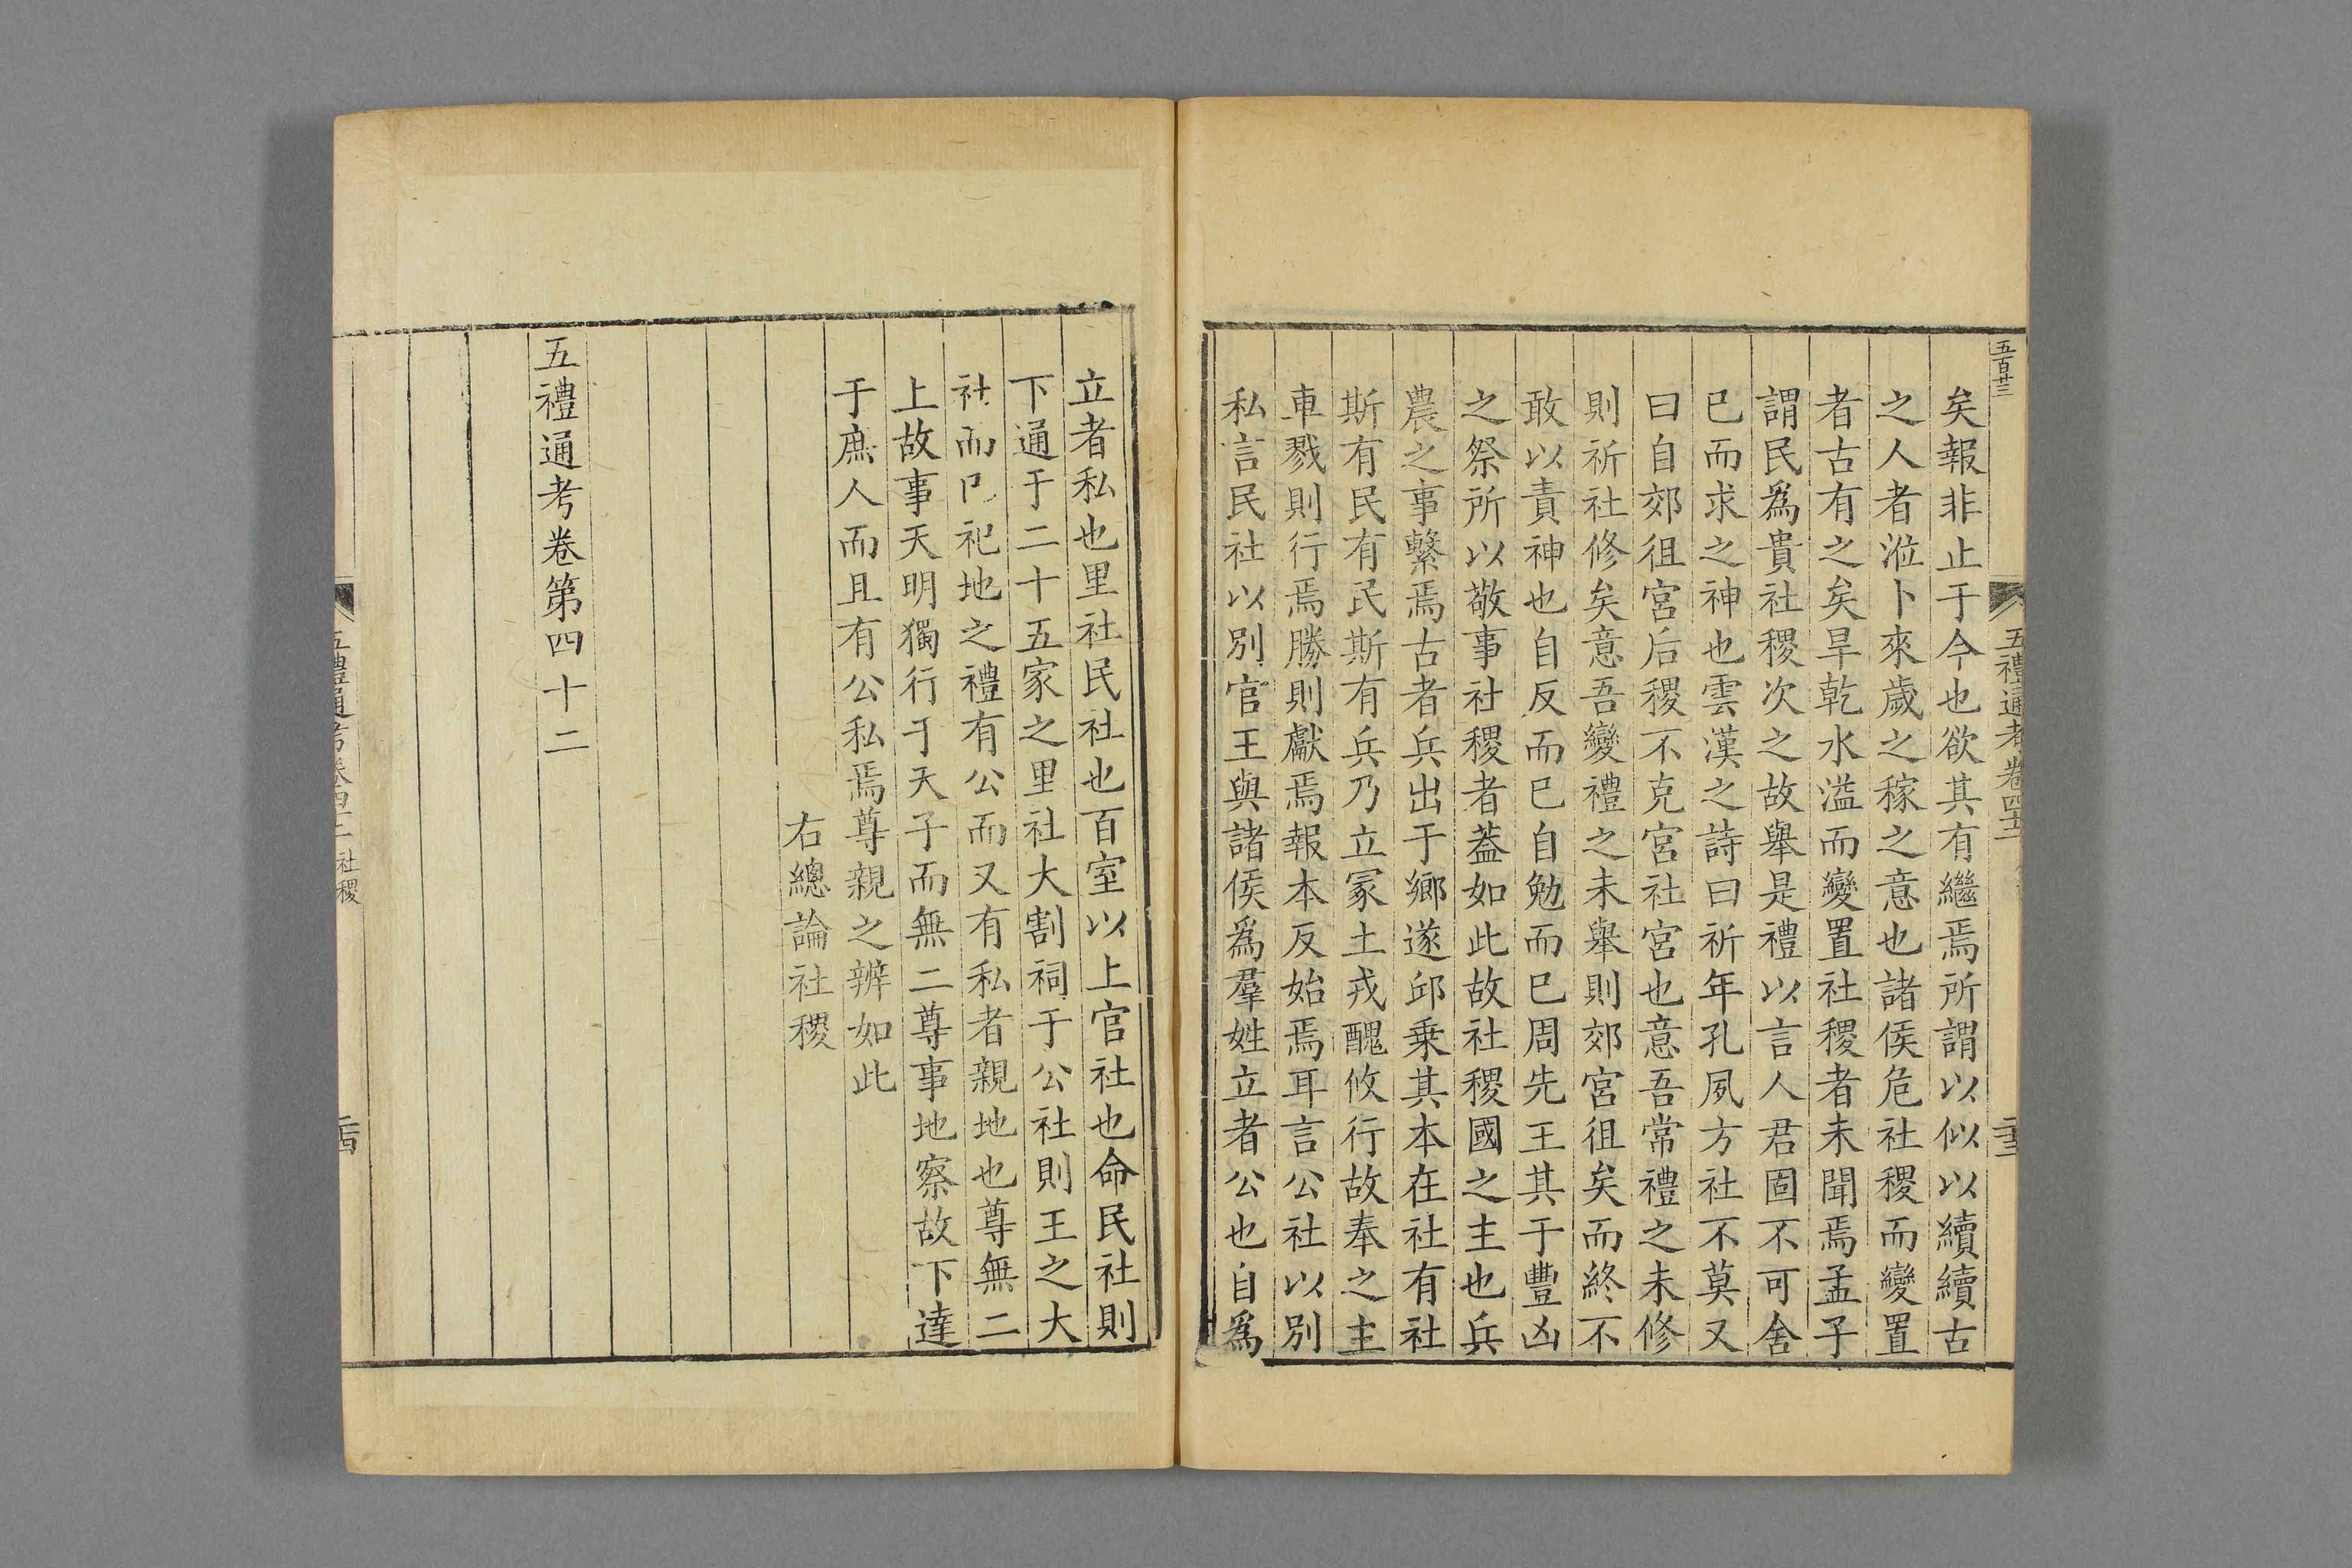 五百廿三
五禮通考卷四十二
二十三
矣報非止于今也欲其有繼焉所謂以似以續續古
之人者涖卜來歲之稼之意也諸侯危社稷而變置
者古有之矣旱乾水溢而變置社稷者未聞焉孟子
謂民爲貴社稷次之故舉是禮以言人君固不可舍
已而求之神也雲漢之詩曰祈年孔夙方社不莫又
曰自郊徂宮后稷不克宮社宮也意吾常禮之未修
則祈社修矣意吾變禮之未舉則郊宮徂矣而終不
敢以責神也自反而已自勉而已周先王其于豐凶
之祭所以敬事社稷者葢如此故社稷國之主也兵
農之事繫焉古者兵出于鄉遂邱乗其本在社有社
斯有民有民斯有兵乃立冢土戎醜攸行故奉之主
車戮則行焉勝則獻焉報本反始焉耳言公社以別
私言民社以別官王與諸侯爲羣姓立者公也自爲
立者私也里社民社也百室以上官社也命民社則
下通于二十五家之里社大割祠于公社則王之大
社而已祀地之禮有公而又有私者親地也尊無二
上故事天明獨行于天子而無二尊事地察故下達
于庶人而且有公私焉尊親之辨如此
右總論社稷
五禮通考卷第四十二
五禮通考卷四十二 社稷
二十四